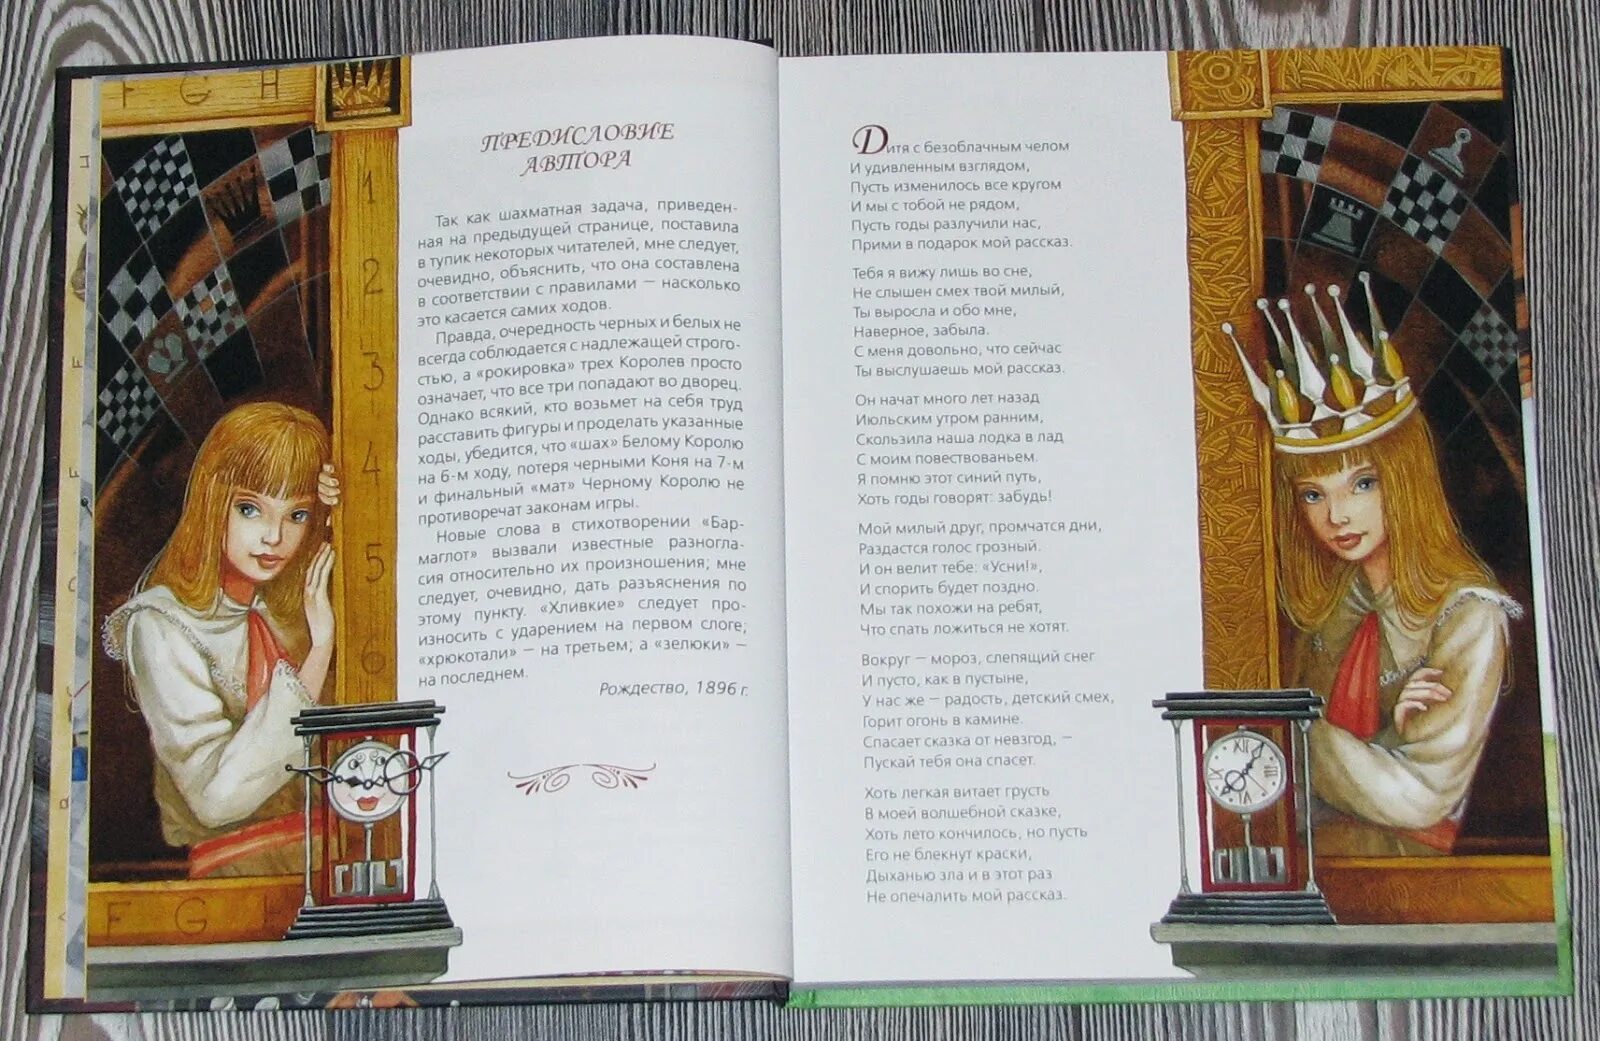 F G H
1
2
3
4
5
6
F G H
ПРЕДИСЛОВИЕ
АВТОРА
Так как шахматная задача, приведен-
ная на предыдущей странице, поставила
в тупик некоторых читателей, мне следует,
очевидно, объяснить, что она составлена
в соответствии с правилами — насколько
это касается самих ходов.
Правда, очередность черных и белых не
всегда соблюдается с надлежащей строго-
стью, а «рокировка» трех Королев просто
означает, что все три попадают во дворец.
Однако всякий, кто возьмет на себя труд
расставить фигуры и проделать указанные
ходы, убедится, что «шах» Белому Королю
на 6-м ходу, потеря черными Коня на 7-м
и финальный «мат» Черному Королю не
противоречат законам игры.
Новые слова в стихотворении «Бар-
маглот» вызвали известные разногла-
сия относительно их произношения; мне
следует, очевидно, дать разъяснения по
этому пункту. «Хливкие» следует про-
износить с ударением на первом слоге;
«хрюкотали» — на третьем; а «зелюки» —
на последнем.
Рождество, 1896 г.
Дитя с безоблачным челом
И удивленным взглядом,
Пусть изменилось все кругом
И мы с тобой не рядом,
Пусть годы разлучили нас,
Прими в подарок мой рассказ.
Тебя я вижу лишь во сне,
Не слышен смех твой милый,
Ты выросла и обо мне,
Наверное, забыла.
С меня довольно, что сейчас
Ты выслушаешь мой рассказ.
Он начат много лет назад
Июльским утром ранним,
Скользила наша лодка в лад
С моим повествованьем.
Я помню этот синий путь,
Хоть годы говорят: забудь!
Мой милый друг, промчатся дни,
Раздастся голос грозный.
И он велит тебе: «Усни!»,
И спорить будет поздно.
Мы так похожи на ребят,
Что спать ложиться не хотят.
Вокруг — мороз, слепящий снег
И пусто, как в пустыне,
У нас же — радость, детский смех,
Горит огонь в камине.
Спасает сказка от невзгод, —
Пускай тебя она спасет.
Хоть легкая витает грусть
В моей волшебной сказке,
Хоть лето кончилось, но пусть
Его не блекнут краски,
Дыханью зла и в этот раз
Не опечалить мой рассказ.
XII
III
VI
IX